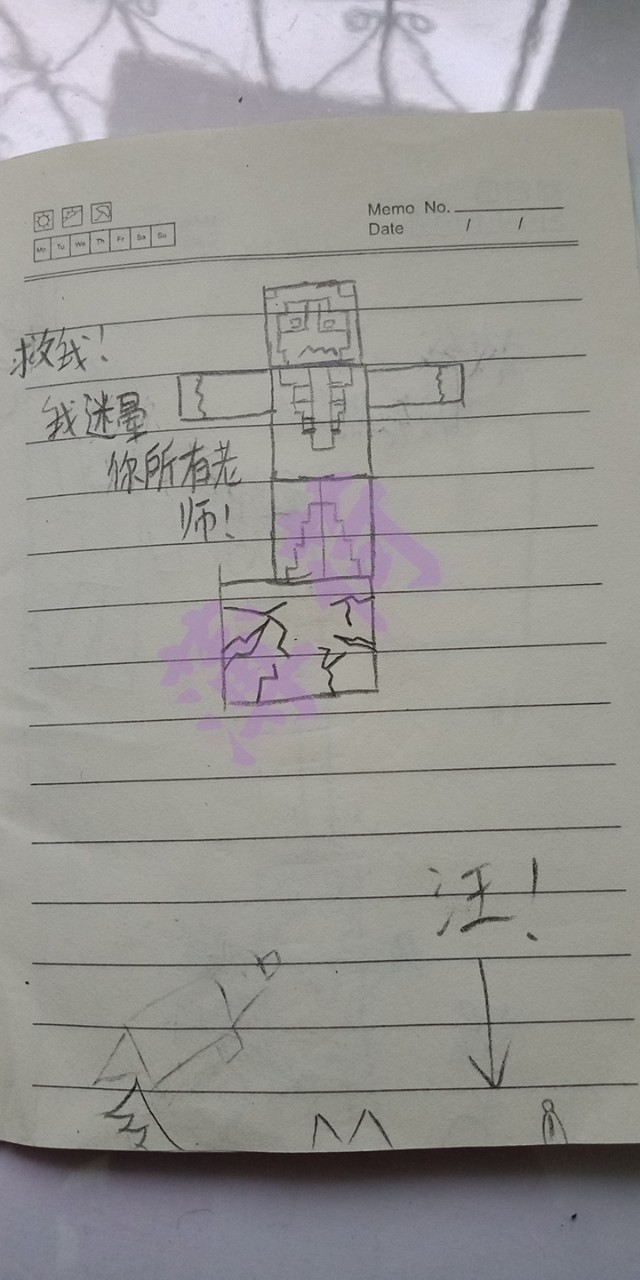 Memo No.
Mo Tu We Th Fr Sa Su
Date / /
救我!
我迷晕
你所有老
师!
汪!